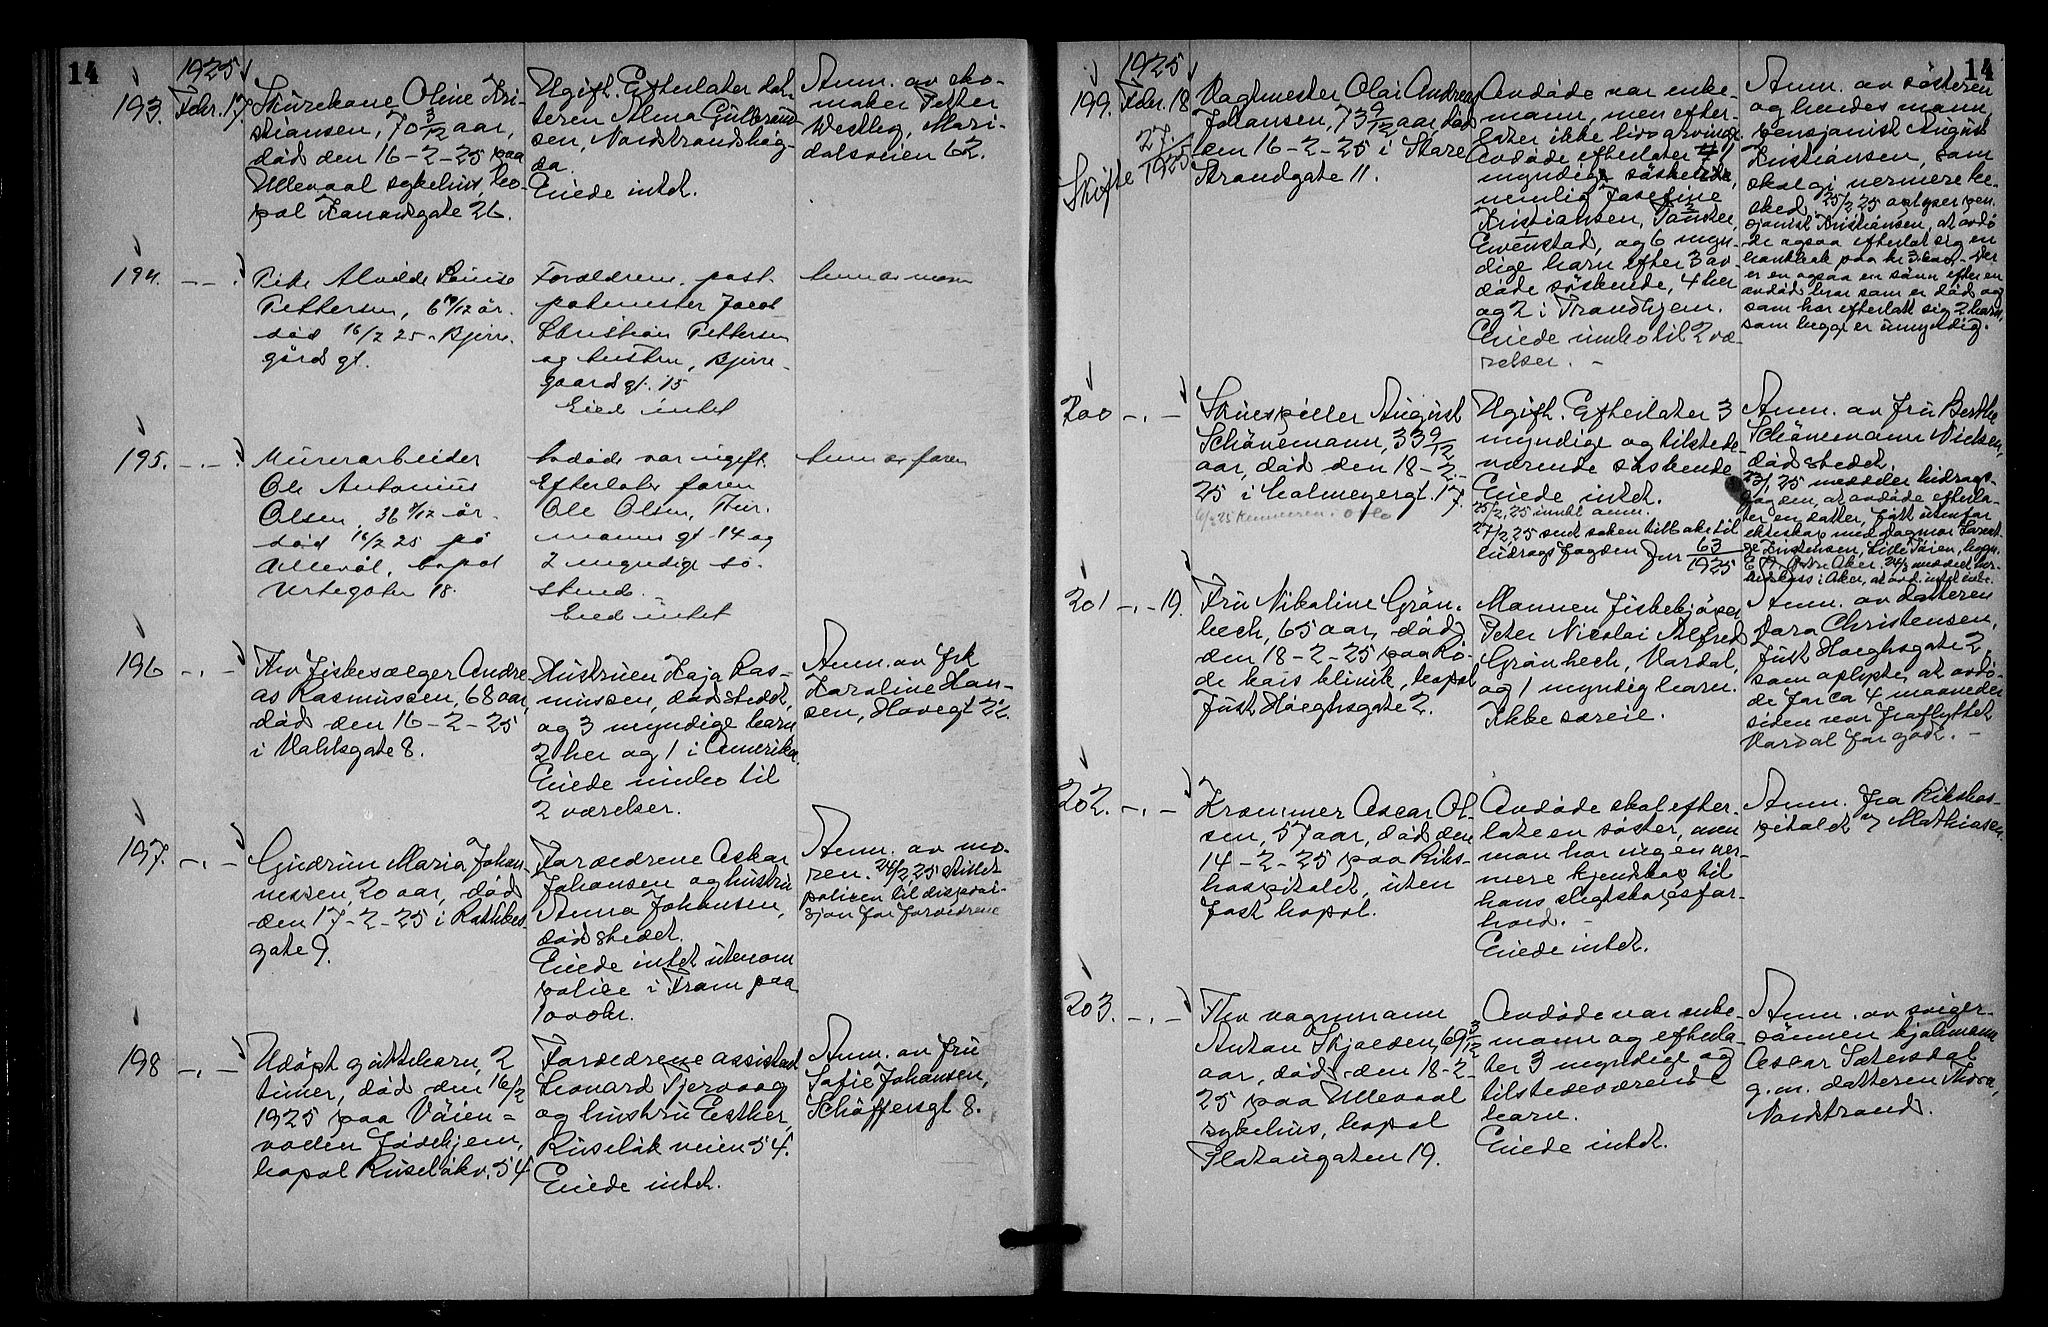 14
1925
193. Febr. 17.
Skurekone Oline Kri-
stiansen, 70 3/12 aar,
død den 16-2-25 paa
Ullevaal sykehus, bo-
pal gate 26.
Ugift. Efterlater dat-
teren Alma Gulbrand-
sen, Nordstrandshøg-
da.
Eiede intet.
Anm. av sko-
maker Petter
Westby, Mari-
dalsveien 62.
194. - - .
Pike Alvilde Louise
Pettersen, 6 /12 år.
død 16/2 25. Bjerre-
gård gt.
Forældrene, post-
Jacob
Christian Pettersen
og hustru, Bjerre-
gaard gt. 15
Eied intet
Anm av moren
195. -.-.
Murerarbeider
Ole Antonius
Olsen, 36 /12 år.
død 16/2 25 på
Ullevål, bopal
Urtegaten 18.
Avdøde var ugift.
Efterlater faren
Ole Olsen, Tor-
mann gt 14 og
2 myndige sø-
skende.
Eied intet
Anm av faren
196 -.-
Fhv fiskesælger Andre-
as Rasmussen, 68 aar,
død den 16-2-25
i Vahlsgate 8.
Hustruen Kaja Ras-
mussen, dødstedet,
og 3 myndige barn
2 her og 1 i Amerika.
Eiede innbo til
2 værelser.
Anm. av frk
Karoline Han-
sen, Hovegt 22.
197. -.-
Gudrun Maria Johan-
nessen, 20 aar, død
den 17-2-25 i Rathkes-
gate 9.
Forældrene Oskar
Johansen og hustru
Anna Johansen,
dødstedet.
Eiede intet utenom
police i Fram paa
1000 kr.
Anm. av mo-
ren. 24/2 25 stillet
policen til disposi-
sjon for forældrene
198 -.-
Udøpt guttebarn, 2
timer, død den 16/2
1925 paa Vøien-
volden fødehjem,
bopal Ruseløkv. 54
Forældrene assistent
Leonard Tjervaag
og hustru Esther,
Ruseløkveien 54.
Eiede intet.
Anm. av fru
Sofie Johansen,
Schøffersgt 8.
14
1925
199. Febr. 18
Skifte 27/1925
Vagtmester Olai Andreas
Johansen, 73 9/12 aar, død
den 16-2-25 i Store
Strandgate 11.
Avdøde var enke-
mann, men efter-
later ikke livsarvinger.
Avdøde efterlater 1
myndig søskende,
nemlig Josefine
Kristiansen,
Evenstad, og 6 myn-
dige barn efter 3 av-
døde søskende, 4 her
og 2 i Trondhjem.
Eiede innbo til 2 væ-
relser. -
Anm. av søsteren
og hendes mann,
pensjonist August
Kristiansen, som
skal gi nærmere be-
sked. 25/2 25 oplyser pen-
sjonist Kristiansen, at avdø-
de ogsaa efterlot sig en
bankbok paa kr 3.600,-. Der
er en ogsaa en sønn efter en
avdød bror som er død og
som har efterlatt sig 2 barn,
som begge er umyndig.
200 -.-
Skuespiller August
Schönemann, 33 9/12
aar, død den 18-2-
25 i Holmeyergt. 17.
6/3 25 Kemneren i Oslo
Ugift. Efterlater 3
myndige og tilstede-
værende søskende
Eiede intet.
25/2 25 innkl anm.
27/2 25 sent saken tilbake til
bidragsfogden Jnr 63/1925
Anm. av fru Berthe
Schönemann Nielsen,
dødstedet.
23/2 25 meddeler bidrags-
fogden, at avdøde efterla-
ter en datter, født utenfor
ekteskap med Dagmar
Kristensen, Lille Tøien,
201 -.-19.
Fru Nikoline Grön-
bech, 65 aar, død
den 18-2-25 paa Rø-
de kors klinik, bopal
Just Høeghsgate 2.
Mannen fiskekjøper
Peter Nicolai Alfred
Grönbech, Vardal,
og 1 myndig barn.
Ikke særeie.
Anm. av datteren
Dora Christensen,
Just Høeghsgate 2,
som oplyste, at avdø-
de for ca 4 maaneder
siden var fraflyttet
Vardal for godt. -
202. -.-
Krommer Oscar Ol-
sen, 57 aar, død den
14-2-25 paa Riks-
hospitalet, uten
fast bopal.
Avdøde skal efter-
late en søster, men
man har ingen nær-
mere kjendskap til
hans slegtskapsfor-
hold. -
Eiede intet.
Anm. fra Rikshos-
pitalet v/ Mathiesen.
203. -.-
Fhv vognmann
Anton Skjolden, 69 3/12
aar, død den 18-2-
25 paa Ullevaal
sykehus, bopal
Platougaten 19.
Avdøde var enke-
mann og efterla-
ter 3 myndige og
tilstedeværende
barn.
Eiede intet.
Anm. av sviger-
sønnen kjøbmann
Oscar Sætersdal
g.m. datteren Thora,
Nordstrand.